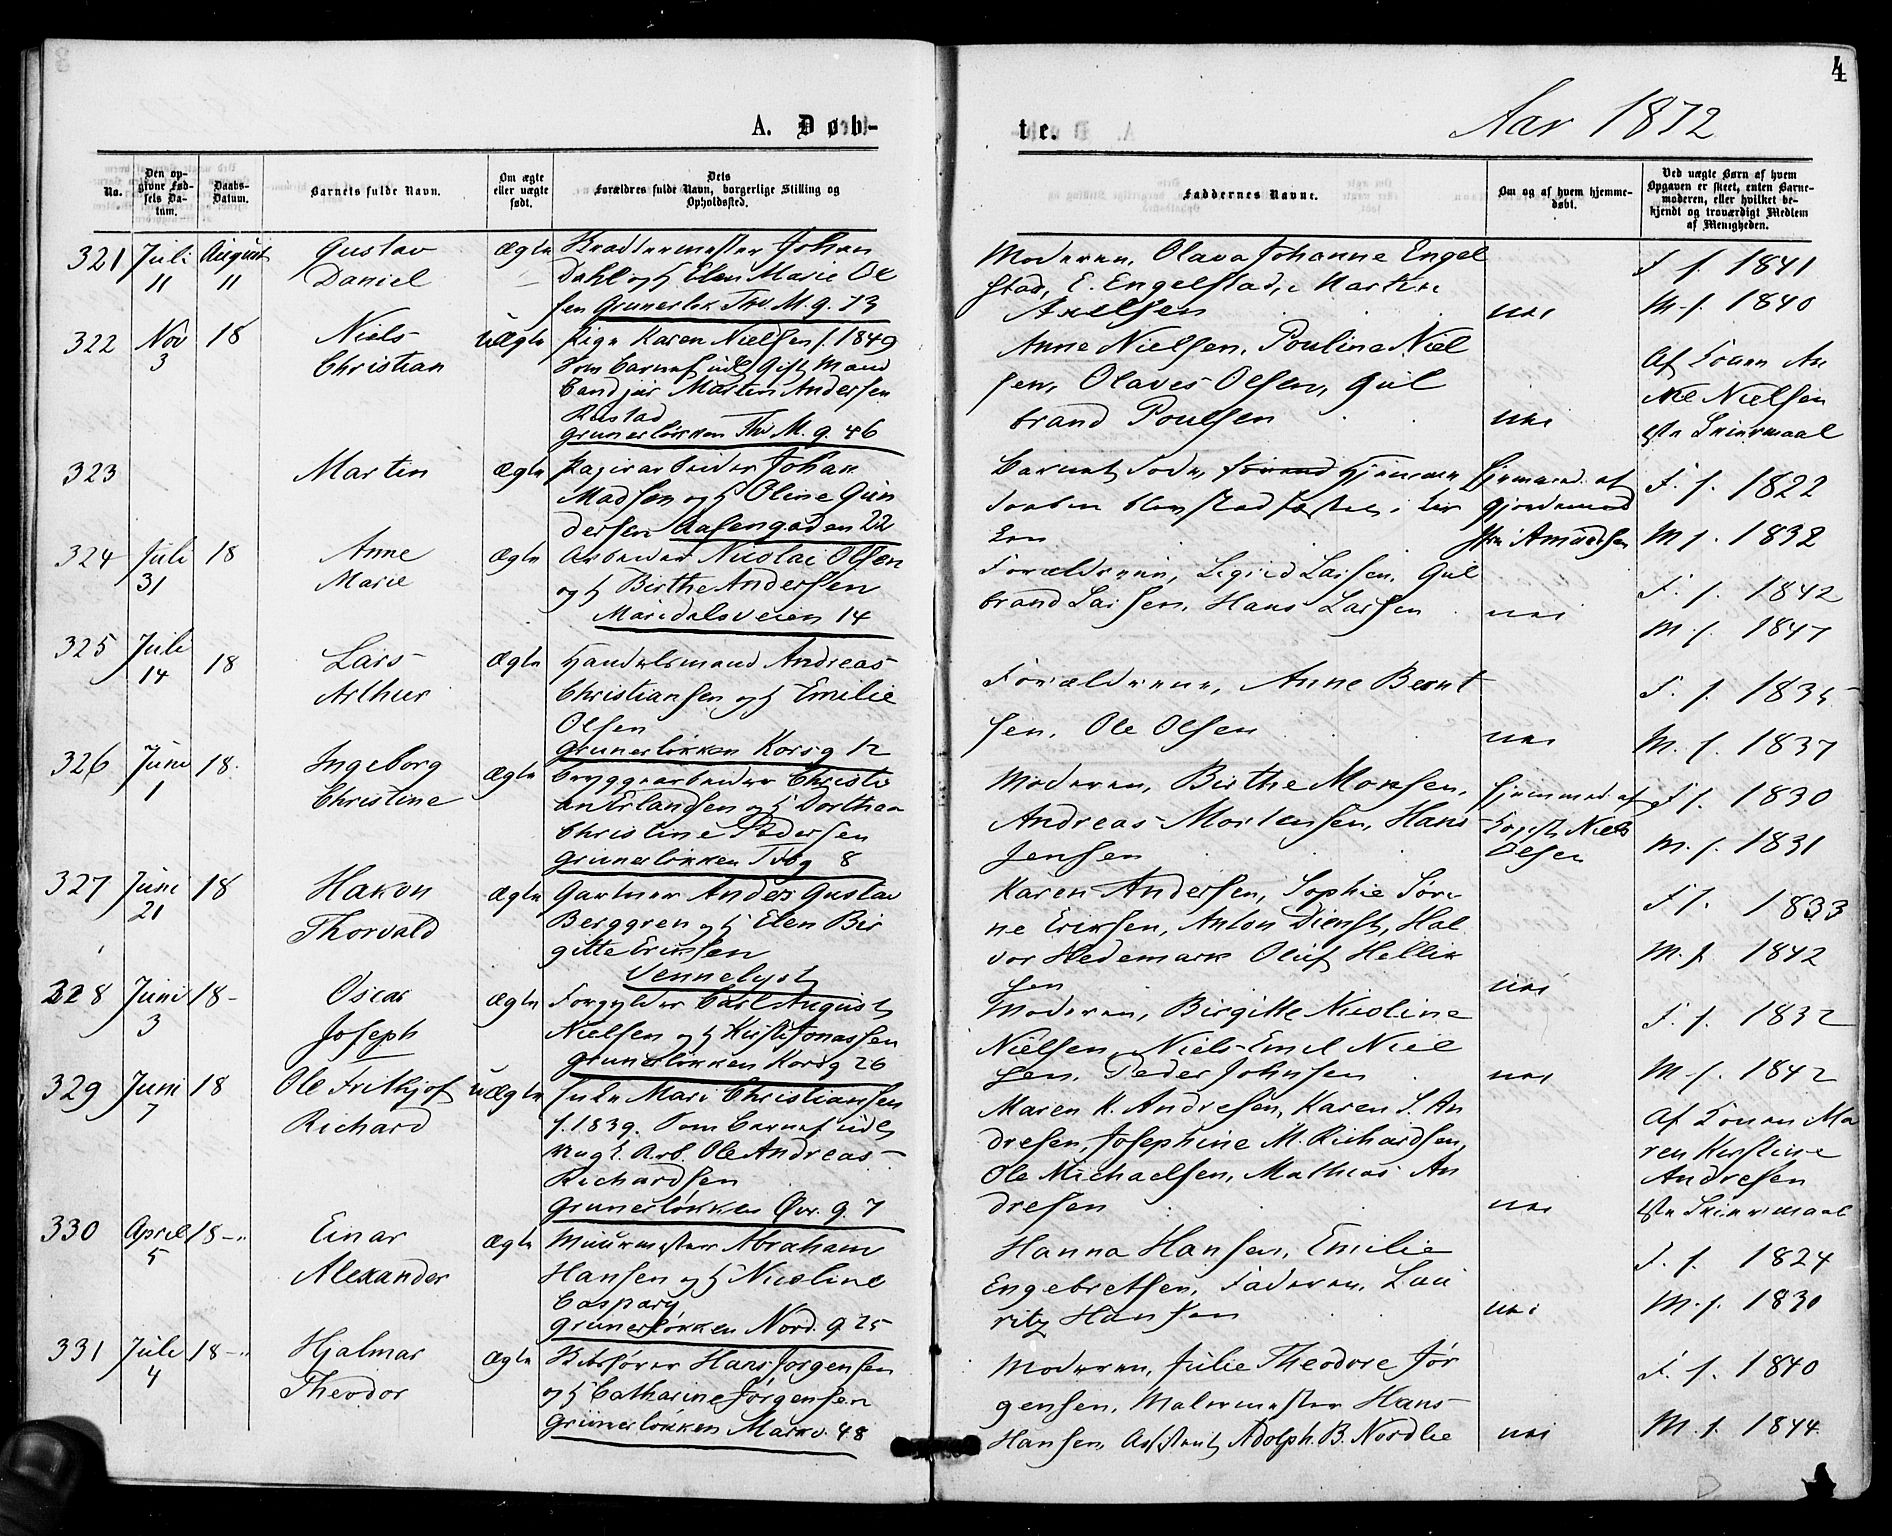 4
A. Døb-
te.
Aar 1872
No.
Den op-
givne Fød-
sels Da-
tum.
Daabs-
Datum.
Barnets fulde Navn.
Om ægte
eller uægte
født.
Dets
Forældres fulde Navn, borgerlige Stilling og
Opholdssted.
Faddernes Navne.
Om og af hvem hjemme-
døbt.
Ved uægte Børn af hvem
Opgaven er skeet, enten Barne-
moderen, eller hvilket be-
kjendt og troværdigt Medlem
af Menigheden.
321 Juli August Gustav ægte Johan
11 11 Daniel Dahl og H Elen Marie Ol
sen Grunerløk Thv M. g. 73
Moderen, Olava Johanne Engel
stad, E. Engelstad,
Axelsen nei
F f. 1841
M. f. 1840
322 Nov 18 Niels uægte Pige Karen Nielsen f. 1849
3 Christian Som Barnefader udl Gift Mand
Martin Andersen
Rustad
Grunerløkken Thv M. g. 46
Anne Nielsen, Pouline Niel
sen, Olaves Olsen, Gul
brand Poulsen nei
Af Konen An
ne Nielsen
efter Skiermaal
323 Martin ægte Papirarbeider Johan
Madsen og H Oline Gun
dersen Aasengaden 22
Barnet døde, hjemme
daaben blev stadfæstet i Kir
ken
Hjemmed. af
Gjordemod
Amundsen
F. f. 1822
M f. 1832
324 Juli 18 Anne ægte Arbeider Nicolai Olsen
31 Marie og H Birthe Andersen
Maridalsveien 14
Forældrene, Sigrid Larsen, Gul
brand Larsen, Hans Larsen nei
F. f. 1842
M. f. 1847
325 Juli 18 Lars ægte Handelsmand Andreas
14 Arthur Christiansen og H Emilie
Olsen
Grunerløkken Korsg 12
Forældrene, Anne Bernt
sen, Ole Olsen nei
F. f. 1835
M. f. 1837
326 Juni 18. Ingeborg ægte Bryggearbeider Christi
1 Christine an Erlandsen og H Dorthea
Christine Pedersen
Grunerløkken Tvbg 8
Moderen, Birthe Monsen,
Andreas Mortensen, Hans
Jensen
Hjemmed af
Niels
Olsen
F f. 1830
M. f. 1831
327 Juni 18 Hakon ægte Gartner Anders Gustav
21 Thorvald Berggren og H Elen Bir
gitte Eriksen
Vennelyst
Karen Andersen, Sophie Søri
ne Eriksen, Anton Dienst, Hal
vor Hedemark Oluf Hellik
sen nei
F f. 1833
M. f. 1842
228 Juni 18- Oscar ægte Forgylder Carl August
3 Joseph Nielsen og H Kirsti Jonassen
Grunerløkken Korsg 26
Moderen, Birgitte Nicoline
Nielsen, Niels Emil Niel
sen, Peder Johnsen nei
F. f. 1832
M. f. 1842
329 Juni 18 Ole Frithjof uægte Mari Christiansen
7 Richard f. 1839. Som Barnef udl
Ungk. Arb. Ole Andreas
Richardsen
Grunerløkken Øvr. g. 7
Maren K. Andresen, Karen S. An
dresen, Josephine M. Richardsen,
Ole Michaelsen, Mathias An
dresen nei
Af Konen Ma
ren Kirstine
Andresen
efter Skiermaal
330 April 18-" Einar ægte Muurmester Abraham
5 Alexander Hansen og H Nicoline
Caspary
Grunerløkken Nord. g 25
Hanna Hansen, Emilie
Engebretsen, Faderen, Lau
ritz Hansen nei
F. f. 1824
M. f. 1830
331 Juli 18-" Hjalmar ægte Hans Jørgensen
4 Theodor og H Catharine Jørgensen
Grunerløkken Markv. 48
Moderen, Julie Theodore Jør
gensen, Malermester Hans
Hansen, Assistent Adolph. B. Nordlie nei
F. f. 1840
M. f. 1844